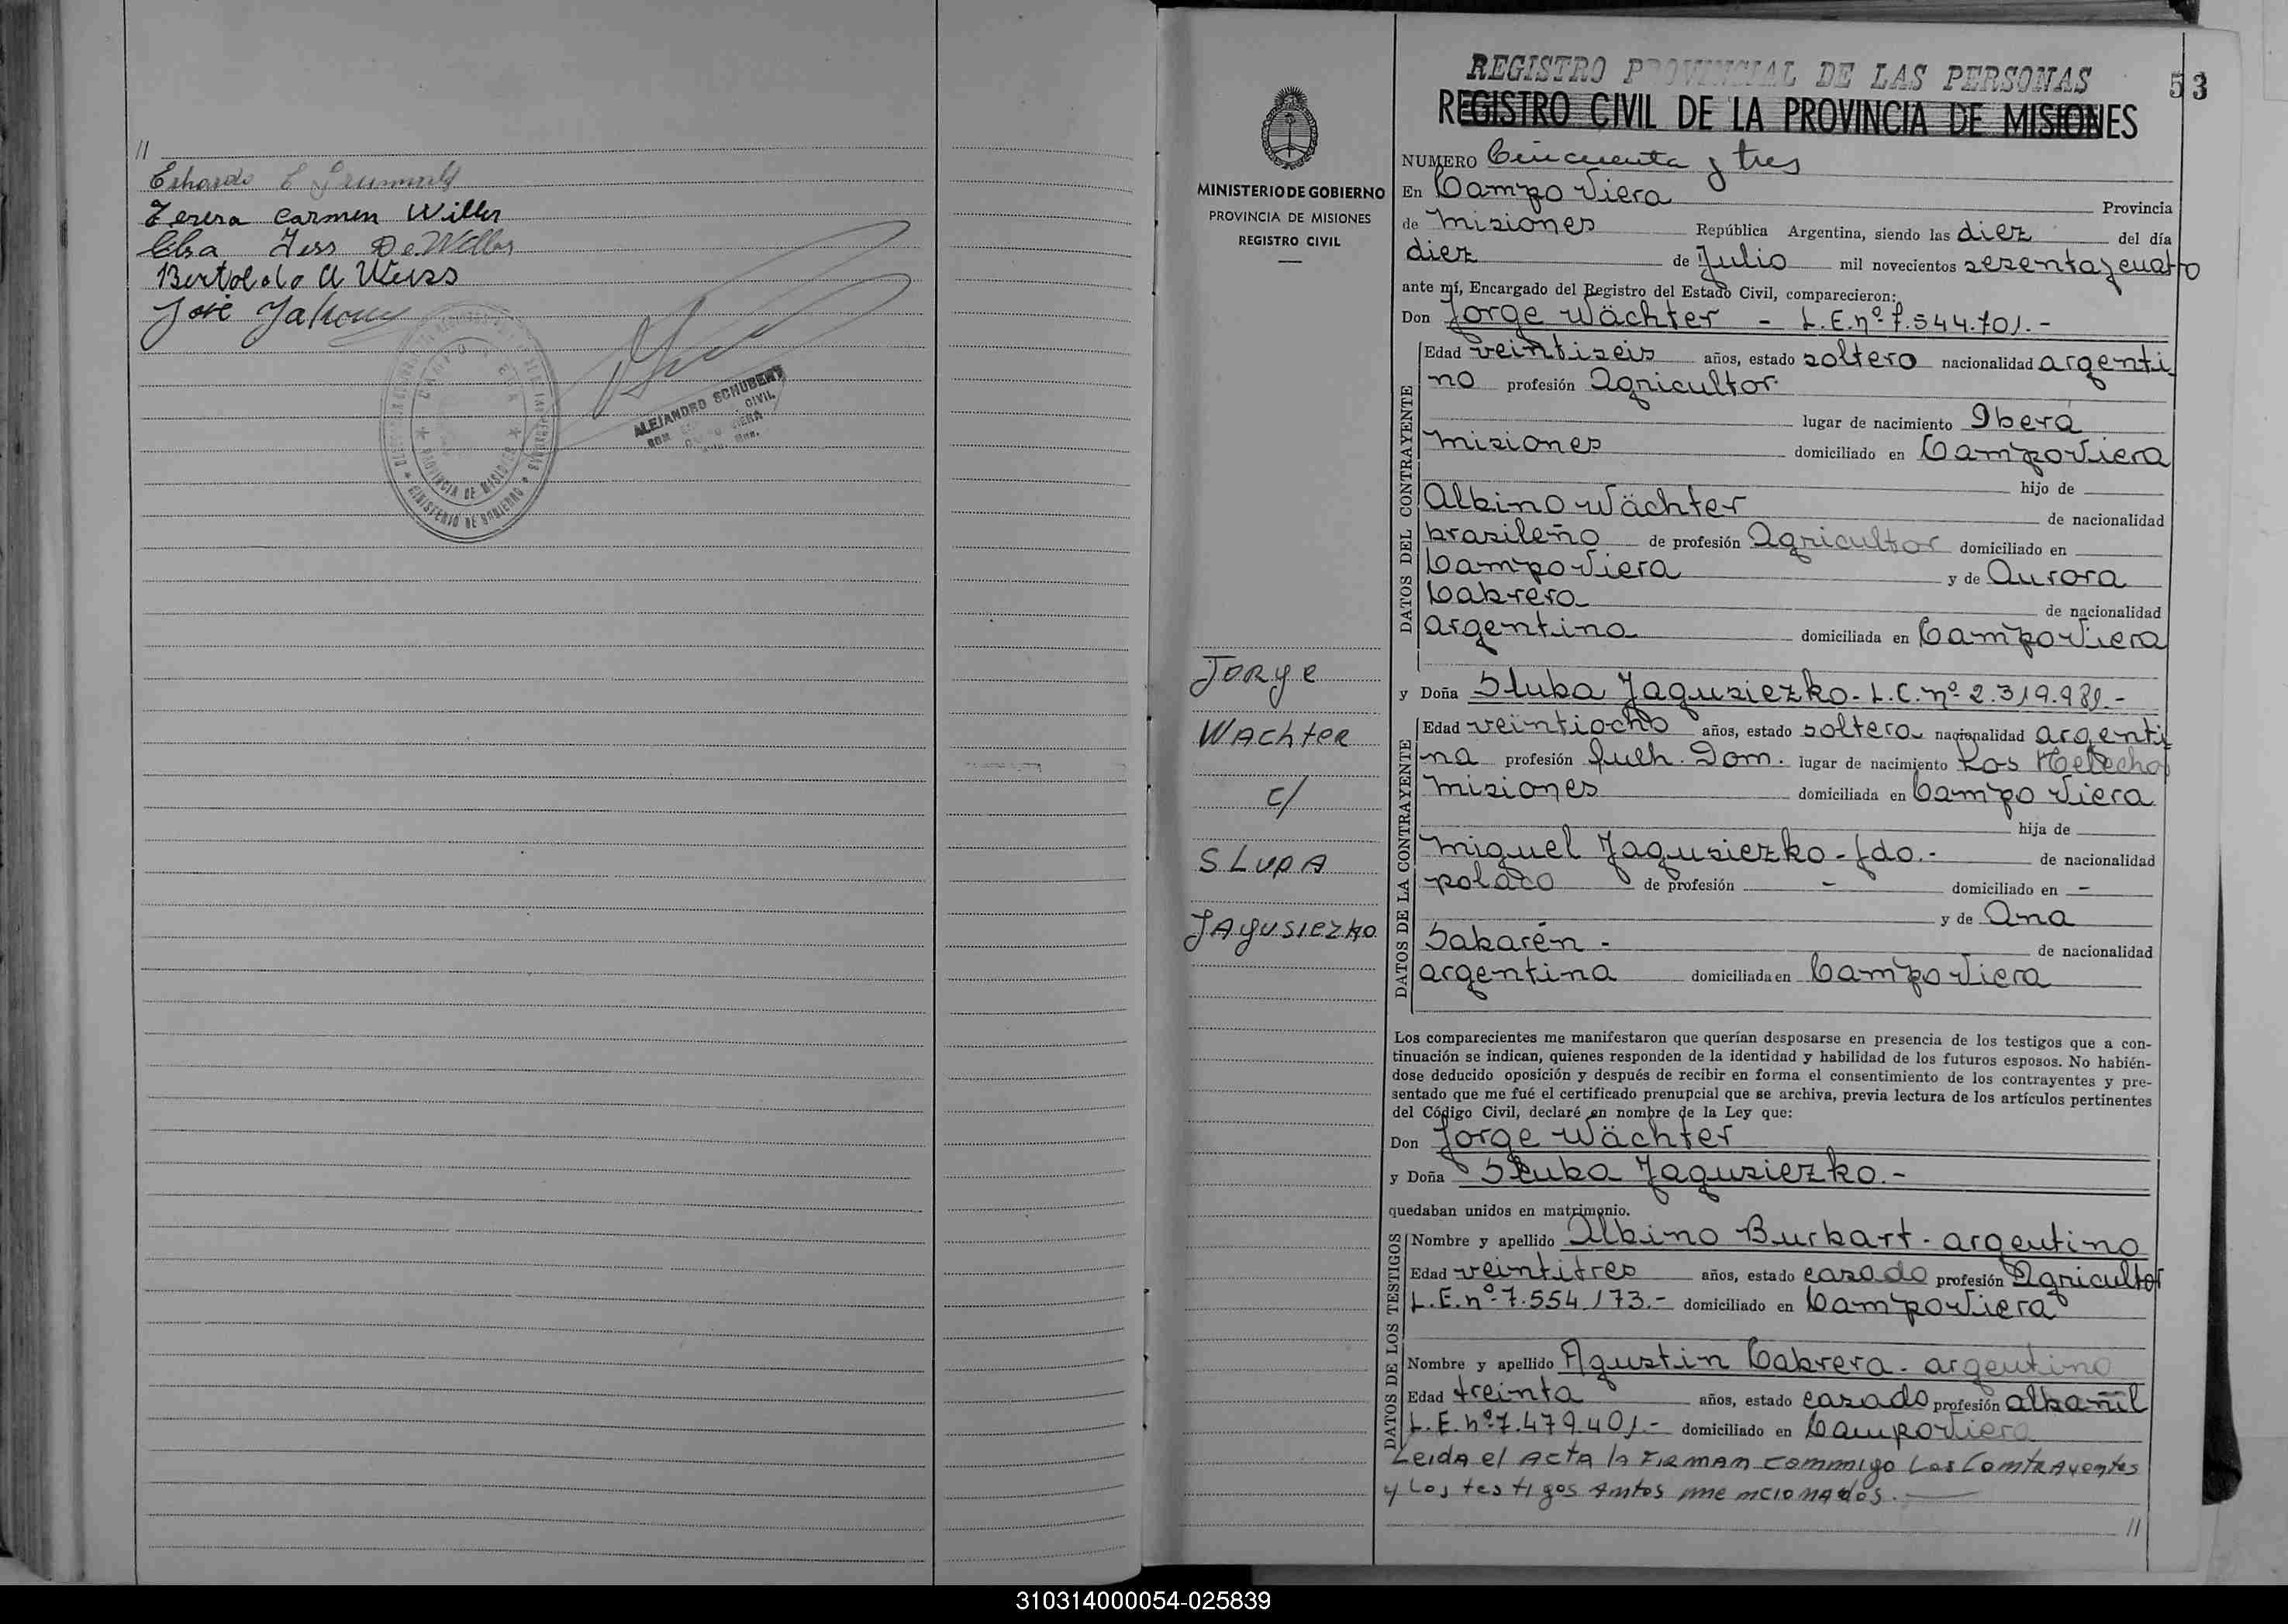 //
Teresa Carmen Willer
Elsa Hess De Willer
Bertoldo A Weiss
José
ALEJANDRO SCHUBERT
CIVIL
PROVINCIA DE MISIONES
MINISTERIO DE GOBIERNO
MINISTERIO DE GOBIERNO
PROVINCIA DE MISIONES
REGISTRO CIVIL
JORGE
WACHTER
C/
SLUPA
JAGUSIEZKO
REGISTRO PROVINCIAL DE LAS PERSONAS
53
REGISTRO CIVIL DE LA PROVINCIA DE MISIONES
NUMERO Cincuenta y tres
En Campo Viera Provincia
de Misiones República Argentina, siendo las diez del día
diez de Julio mil novecientos sesenta y cuatro
ante mí, Encargado del Registro del Estado Civil, comparecieron:
Don Jorge Wächter - L.E. nº 7.544.701.-
DATOS DEL CONTRAYENTE
Edad veintiseis años, estado soltero nacionalidad argenti
no profesión Agricultor
lugar de nacimiento Iberá
Misiones domiciliado en Campo Viera
hijo de
Albino Wächter de nacionalidad
brasileño de profesión Agricultor domiciliado en
Campo Viera y de Aurora
Cabrera de nacionalidad
argentina domiciliada en Campo Viera
y Doña Sluba Jagusiezko - L.C. nº 2.319.989.-
DATOS DE LA CONTRAYENTE
Edad veintiocho años, estado soltera nacionalidad argenti
na profesión Queh. Dom. lugar de nacimiento Los Helechos
Misiones domiciliada en Campo Viera
hija de
Miguel Jagusiezko - fdo.- de nacionalidad
polaco de profesión - domiciliado en -
y de Ana
Sakarén - de nacionalidad
argentina domiciliada en Campo Viera
Los comparecientes me manifestaron que querían desposarse en presencia de los testigos que a con-
tinuación se indican, quienes responden de la identidad y habilidad de los futuros esposos. No habién-
dose deducido oposición y después de recibir en forma el consentimiento de los contrayentes y pre-
sentado que me fué el certificado prenupcial que se archiva, previa lectura de los artículos pertinentes
del Código Civil, declaré en nombre de la Ley que:
Don Jorge Wächter
y Doña Sluba Jagusiezko.-
quedaban unidos en matrimonio.
DATOS DE LOS TESTIGOS
Nombre y apellido Albino Burkart - argentino
Edad veintitres años, estado casado profesión Agricultor
L.E. nº 7.554.173.- domiciliado en Campo Viera
Nombre y apellido Agustin Cabrera - argentino
Edad treinta años, estado casado profesión albañil
L.E. nº 7.479.401.- domiciliado en Campo Viera
Leida el Acta la Firman commigo Los Contrayentes
y Los testigos Antes mencionados.
//
310314000054-025839